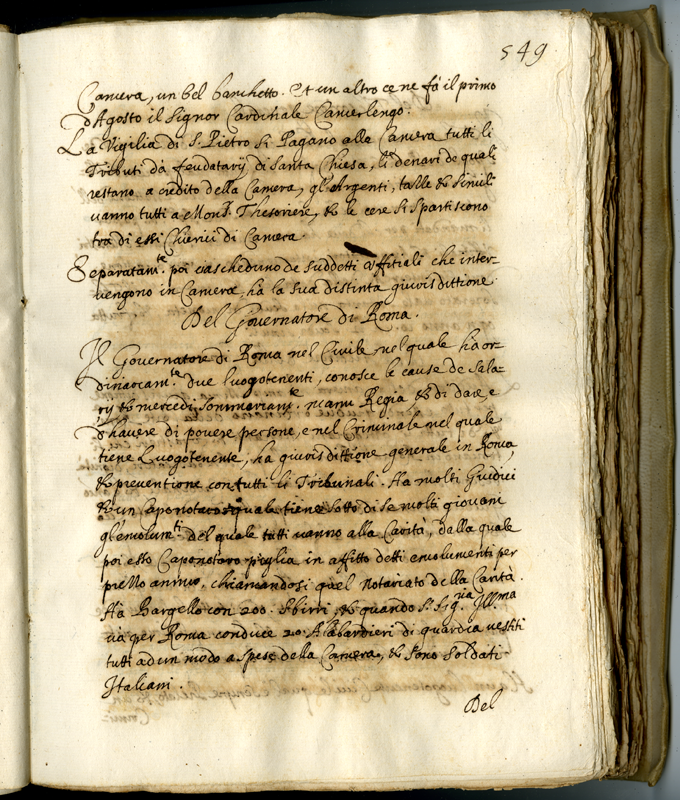 549
Camera, un bel banchetto. Et un altro ce ne fà il primo
d'Agosto il Signor Cardinale Camerlengo.
La Vigilia di S. Pietro si Pagano alla Camera tutti li
Tributi da feudatarij di Santa Chiesa, li denari de quali
restano a credito della Camera, gl'Argenti, tazze & simili
vanno tutti a Mons.r Thesoriere, & le cere si spartiscono
tra di essi Chierici di Camera.
Separatam.te poi ciascheduno de suddetti Offitiali che inter-
vengono in Camera, hà la sua distinta giurisdittione
Del Governatore di Roma.
Il Governatore di Roma nel Civile, nel quale hà or-
dinariam.te due luogotenenti, conosce le cause de Sala-
rij & mercedi, sommariam.te manu Regia & di dare, e
d'havere di povere persone, e nel Criminale nel quale
tiene Luogotenente, ha giurisdittione generale in Roma,
& preventione con tutti li Tribunali. Ha molti Giudici
& un Caponotaro quale tiene sotto di se molti giovani
gl'emolum.ti del quale tutti vanno alla Carità, dalla quale
poi esso Caponotaro piglia in affitto detti emolumenti per
prezzo annuo, chiamandosi quel Notariato della Carità.
Hà Bargello con 200. Sbirri, & quando S. Sig.ria Ill.ma
và per Roma conduce 20. Alabardieri di guardia vestiti
tutti ad un modo a spese della Camera, & sono soldati
Italiani.
Del